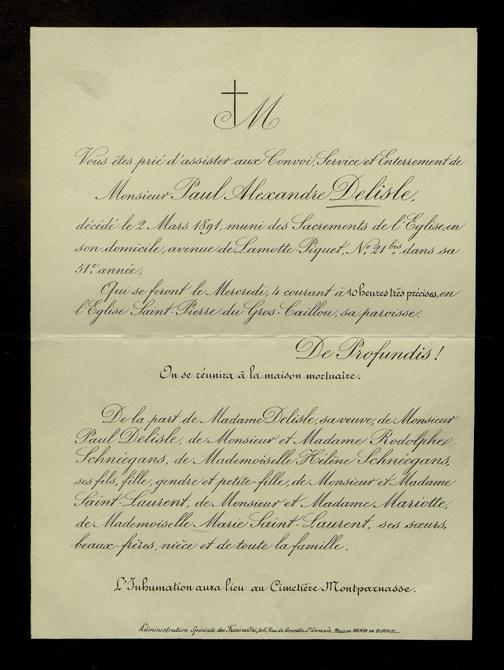 M
Vous êtes prié d'assister aux Convoi, Service et Enterrement de
Monsieur Paul Alexandre Delisle,
décédé le 2 Mars 1891, muni des Sacrements de l'Eglise, en
son domicile, avenue de Lamotte Piquet, No. 21 bis, dans sa
51e. année.
Qui se feront le Mercredi, 4 courant à 10 heures très précises, en
l'Eglise Saint-Pierre du Gros-Caillou, sa paroisse.
De Profundis!
On se réunira à la maison mortuaire.
De la part de Madame Delisle, sa veuve, de Monsieur
Paul Delisle, de Monsieur et Madame Rodolphe
Schnéegans, de Mademoiselle Hélène Schnéegans,
ses fils, fille, gendre et petite-fille, de Monsieur et Madame
Saint-Laurent, de Monsieur et Madame Mariotte,
de Mademoiselle Marie Saint-Laurent, ses sœurs,
beaux-frères, nièce et de toute la famille.
L'Inhumation aura lieu au Cimetière Montparnasse.
Administration Spéciale des Funérailles, Rue de Grenelle St Germain, Maison HENRI DE BORNIOL.